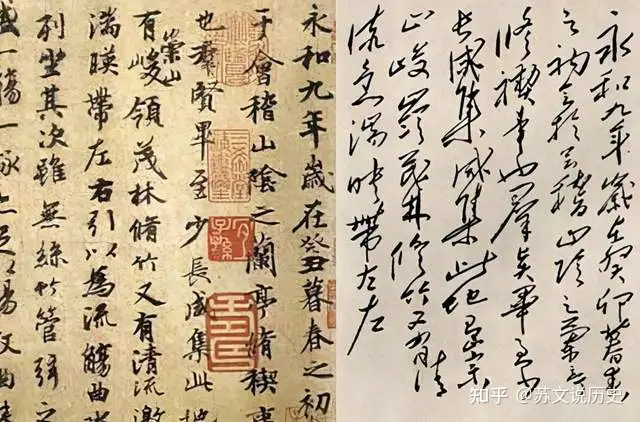 永和九年歲在癸丑暮春之初
于會稽山陰之蘭亭脩稧事
也羣賢畢至少長咸集此地
有崇山峻領茂林脩竹又有清流激
湍暎帶左右引以為流觴曲水
列坐其次雖無絲竹管弦之
盛一觴一詠亦足以暢
永和九年歲在癸卯暮春
之初会於会稽山陰之蘭亭
修禊事也羣賢畢至少
長咸集咸集此地有崇
山峻嶺茂林修竹又有清
流湍映帶左左
知乎 @苏文说历史